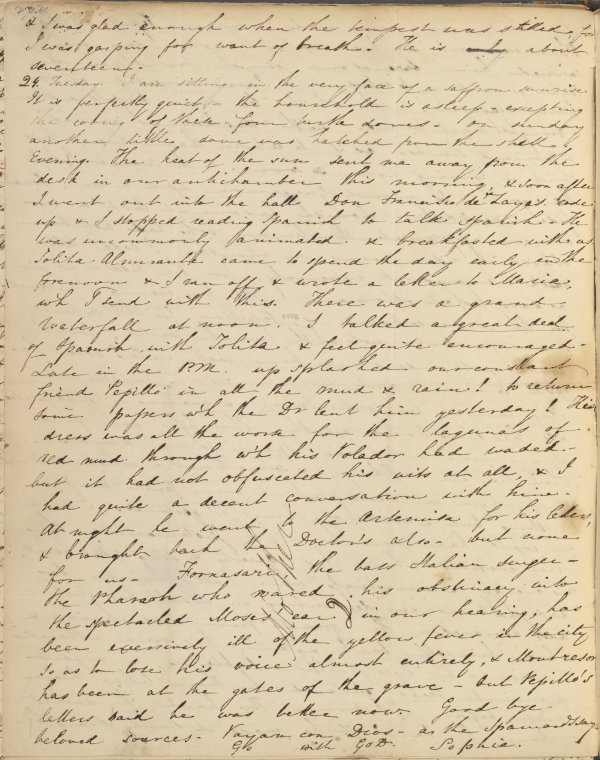 & I was glad enough when the tempest was stilled, for
I was gasping for want of breath. He is about
seventeen.
24. Tuesday. I am sitting in the very face of a saffron sunrise
It is perfectly quiet – the household is asleep – excepting
the cooing of these four turtle doves – On sunday
another little dove was hatched from the shell.
Evening. The heat of the sun sent me away from the
desk in our antichamber this morning, & soon after
I went out into the hall Don Francisco de Layas rode
up & I stopped reading Spanish to talk Spanish. He
was uncommonly animated & breakfasted with us.
Tolita Almirante came to spend the day early in the
forenoon & I ran off & wrote a letter to Maria,
wh I send with this. There was a grand
waterfall at noon. I talked a great deal
of Spanish with Tolita & feel quite encouraged –
Late in the P.M. up splashed our constant
friend Pepillo in all the mud & rain! to return
some papers wh the Dr lent him yesterday! His
dress was all the worse for the lagunas of
red mud through wh his Volador had waded –
but it had not obfuscated his wits at all, & I
had quite a decent conversation with him.
At night he went to the Artemisa for his letters,
& brought back the Doctor's also – but none
for us – Fornasari, the bass Italian singer –
the Pharaoh who roared his obstinacy into
the spectacled Moses' ear in our hearing, has
been excessively ill of the yellow fever in the city
so as to lose his voice almost entirely, & Montresor
has been at the gates of the grave – but Pepillo's
letters said he was better now. Good bye
beloved sources – Vayan con Dios – as the Spaniards say.
Go with God. Sophia.